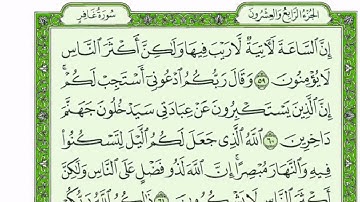 الجزء الرابع والعشرون
سورة غافر
إِنَّ ٱلسَّاعَةَ لَأٓتِيَةٌ لَّا رَيْبَ فِيهَا وَلَٰكِنَّ أَكْثَرَ ٱلنَّاسِ
لَا يُؤْمِنُونَ ٥٩ وَقَالَ رَبُّكُمُ ٱدْعُونِىٓ أَسْتَجِبْ لَكُمْ ۚ
إِنَّ ٱلَّذِينَ يَسْتَكْبِرُونَ عَنْ عِبَادَتِى سَيَدْخُلُونَ جَهَنَّمَ
دَاخِرِينَ ٦٠ ٱللَّهُ ٱلَّذِى جَعَلَ لَكُمُ ٱلَّيْلَ لِتَسْكُنُوا۟
فِيهِ وَٱلنَّهَارَ مُبْصِرًا ۚ إِنَّ ٱللَّهَ لَذُو فَضْلٍ عَلَى ٱلنَّاسِ وَلَٰكِنَّ
أَكْثَرَ ٱلنَّاسِ لَا يَشْكُرُونَ ٦١ ذَٰلِكُمُ ٱللَّهُ رَبُّكُمْ